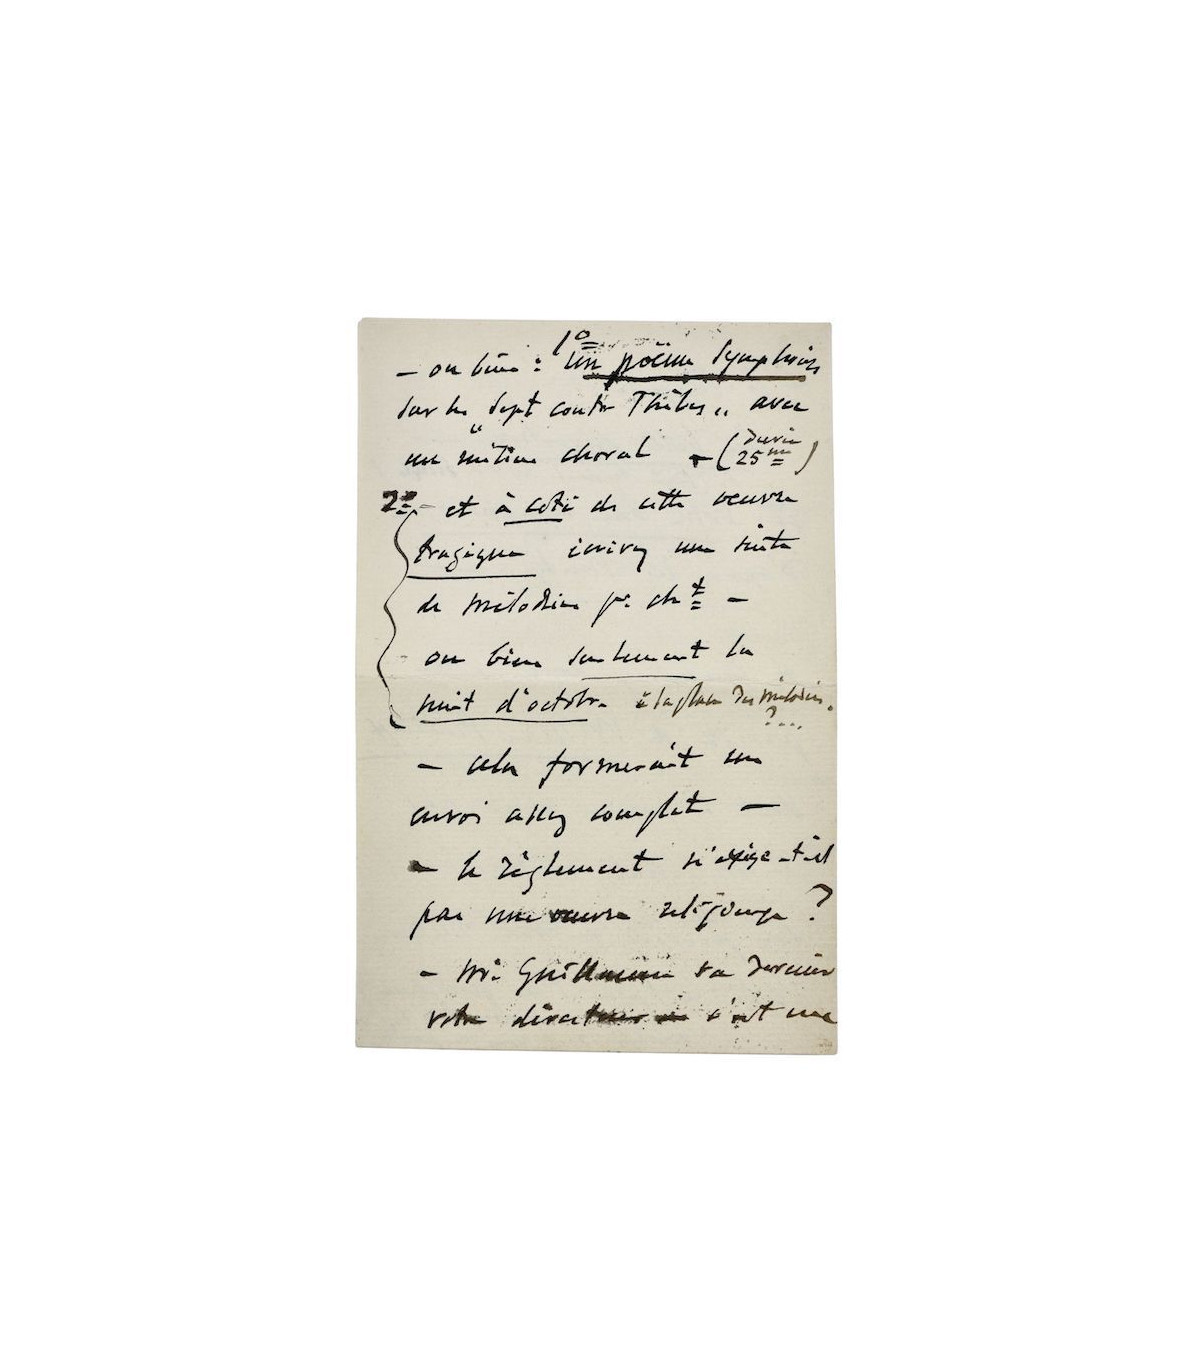 1º
— ou bien : Un poëme symphoniq
sur les "Sept contre Thèbes" avec
un milieu choral — (durée
25 m)
2º — et à coté de cette oeuvre
tragique écrivez une suite
de mélodies pr. cht —
ou bien seulement la
nuit d'octobre à la place des mélodies.
?...
— cela formerait un
envoi assez complet —
— le règlement n'exige-t-il
pas une oeuvre religieuse ?
— Mr. Guillaume va devenir
votre directeur c'est une